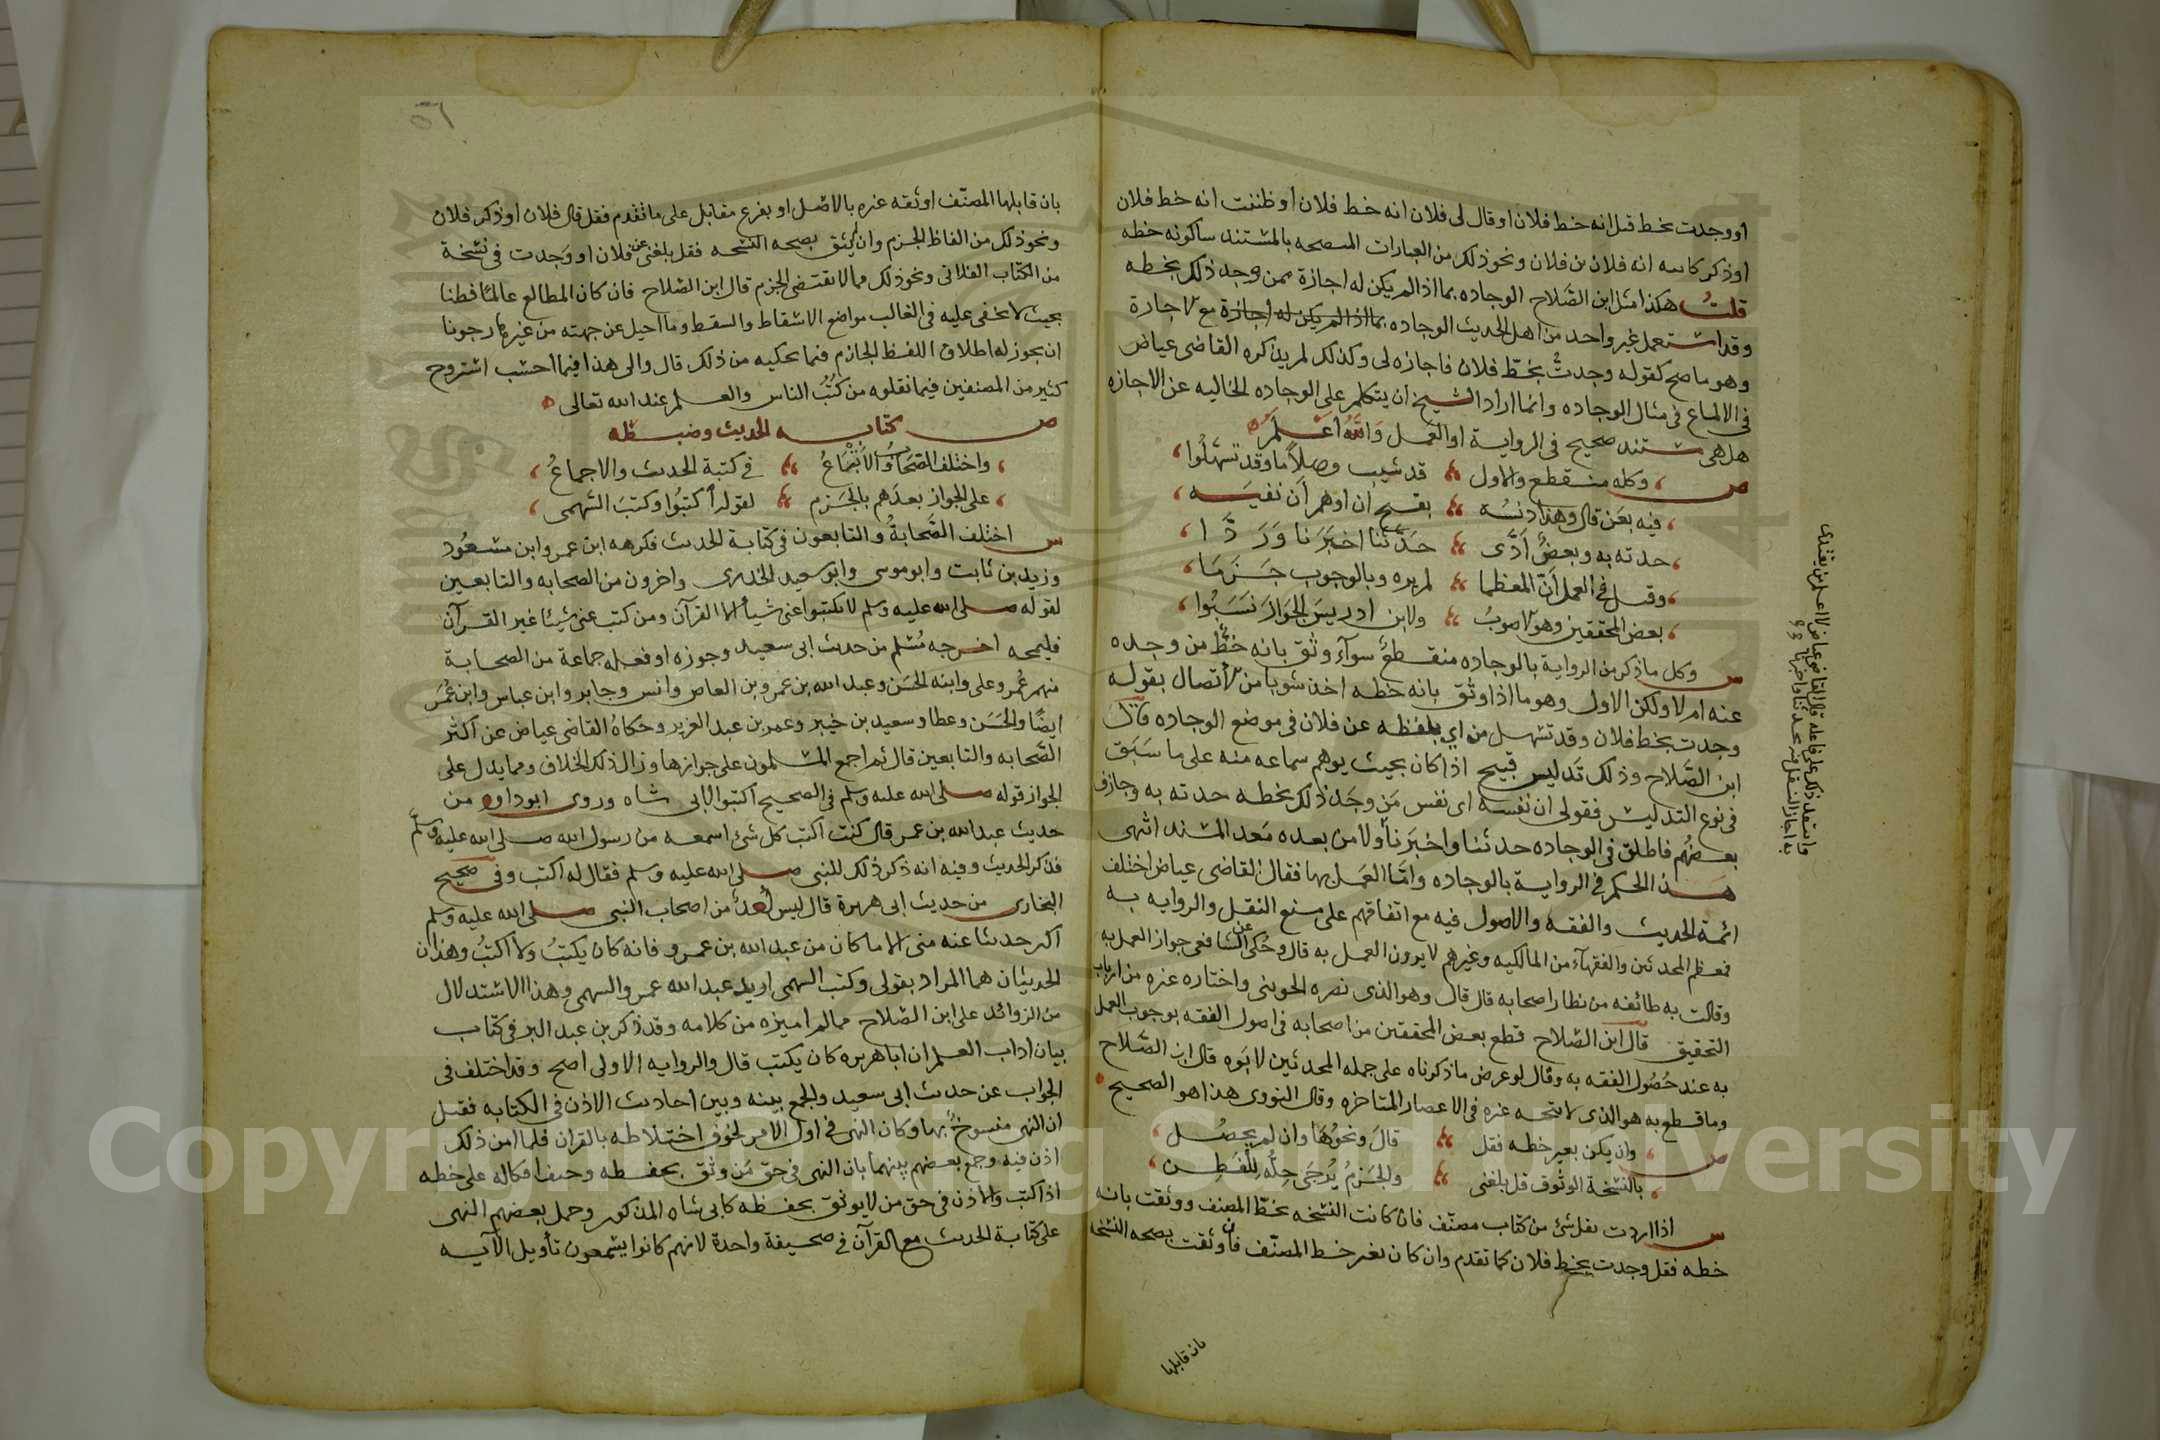 او وجدت بخط قيل انه خط فلان او قال لى فلان انه خط فلان او ظننت انه خط فلان
او ذكر كاتبه انه فلان بن فلان ونحو ذلك من العبارات المفصحه بالمستند ساكونه خطه
قلت هكذا مثل ابن الصلاح الوجاده بما اذا لم يكن له اجازة ممن وجد ذلك بخطه
وقد استعمل غير واحد من اهل الحديث الوجاده بما اذا لم يكن له اجازة مع الاجازة
وهو ماصح كقوله وجدتُ بخطّ فلان فاجازه لى وكذلك لم يذكره القاضى عياض
فى الالماع فى مثال الوجاده وانما اراد الشيخ ان يتكلم على الوجاده الخاليه عن الاجازه
هل هى مستند صحيح فى الرواية او العَمل وَاللّٰهُ اعْلَمُ
ص وكله منقطع والاول قد شيب وصلاً ما وقد تسهلُوا
فيه بعَن قال وهذا دلسُه يقبح ان اوهم أن نفيسَه
حدثه به وبعضٌ أدَّى حَدَّثنا اخبَرَنا وَرَدَّا
وقيل فى العمل انّ المعظما لم يره وبالوجوب جَزَمَا
بعض المحققين وهو الاصوبُ ولابن ادريسَ الجوَازَ نسَبُوا
س وكل ما ذكر من الرواية بالوجاده منقطعٌ سوآء وثق بانه خطّ من وجده
عنه ام لا ولكن الاول وهو ما اذا وثق بانه خطه اخذ شوبا من الاتصال بقوله
وجدت بخط فلان وقد تسهل من اى بلفظه عن فلان فى موضع الوجاده قال
ابن الصَّلاح وذلك تَدليس قبيح اذا كان بحيث يوهم سماعه منه على ما سَبَق
فى نوع التدليس فقولى ان نفسه اى نفس مَن وجَد ذلك بخطه حدثه به وجازف
بعضهُم فاطلق فى الوجاده حدثنا واخبَرنا ولا من بعده مَعد المسند انتهى
هذا الحكم فى الرواية بالوجاده وامّا العَمل بها فقال القاضى عياض اختلف
ائمة الحديث والفقه والاصول فيه مع اتفاقهم على منع النقل والروايه به
فمعظم المحدثين والفقهآء من المالكيه وغيرهم لا يرون العمل به قال وحُكى عن الشافعى جواز العمل به
وقالت به طائفه من نظار اصحابه قال قال وهو الذى نصره الجوينى واختاره غيره من ارباب
التحقيق قال ابن الصّلاح قطع بعض المحققين من اصحابه فى اصول الفقه بوجوب العمل
به عند حُصُول الثقه به وقال لو عرض ما ذكرناه على جمله المحدثين لابَوه قال ابن الصّلاح
وما قطع به هو الذى لا يتجه غيره فى الاعصار المتاخره وقال النووى هذا هو الصحيح
ص وان يكن بغير خطه فقل قالَ ونحوُهَا وان لم يحصُل
بالنسْخة الوثوق قل بلغنى والجَزمُ يُرجَى حِلُّهُ لِلْفَطِن
س اذا اردت نقل شئ من كتاب مصنّف فان كانت النسخه بخطّ المصنف ووثقت بانه
خطه فقل وجدت بخط فلان كما تقدم وان كان بغير خط المصنّف فان وثقت بصحه النسخه
بان قابلها
بان قابلها المصنّف او ثقه غيره بالاصل او بفرع مقابل على ما تقدم فقل قال فلان او ذكر فلان
ونحو ذلك من الفاظ الجزم وان لم يثق بصحه النسخه فقل بلغنى عن فلان او وَجدت فى نسخة
من الكتاب الفلانى ونحو ذلك مما لا يقتضى الجزم قال ابن الصّلاح فان كان المطالع عالمًا فطنا
بحيث لا يخفى عليه فى الغالب مواضع الاسقاط والسقط وما احيل عن جهته من غيرها رجونا
ان يجوز له اطلاق اللفظ الجازم فيما يحكيه من ذلك قال والى هذا فيما احسب استروح
كثير من المصنفين فيما نقلوه من كُتُبُ الناس والعلم عند الله تعالى
ص كتابه الحديث وضبطه
واختلف الصّحابُ والاتْباعُ فى كتبة الحديث والاجماعُ
على الجواز بعدَهم بالجَزم لقوله اكتبُوا وكتبَ السّهمى
س اختلف الصَّحابةُ والتابعون فى كتابة الحديث فكرهه ابن عمر وابن مسعُود
وزيد بن ثابت وابو موسى وابو سعيد الخدرى واخرون من الصحابه والتابعين
لقوله صلى الله عليه وسلم لا تكتبوا عنى شيأ الا القرآن ومن كتب عنى شيئا غير القرآن
فليمحه اخرجه مُسْلم من حديث ابى سعيد وجوزه او فعله جماعة من الصحابة
منهم عُمر وعلى وابنه الحسَن وعبد الله بن عمرو بن العاص وانس وجابر وابن عباس وابن عُمَر
ايضًا والحسَن وعطا وسعيد بن جبير وعمر بن عبد العزيز وحكاهُ القاضى عياض عن اكثر
الصَّحابه والتابعين قال ثم اجمع المسلمون على جوازها وزال ذلك الخلاف ومما يدل على
الجواز قوله صلى الله عليه وسلم فى الصحيح اكتبوا لابى شاه وروى ابو داود من
حديث عبد الله بن عمر قال كنت اكتب كل شئ اسمعه من رسول الله صلى الله عليه وسلّم
فذكر الحديث وفيه انه ذكر ذلك للنبى صلى الله عليه وسلم فقال له اكتب وفى صحيح
البخارى من حديث ابى هريرة قال ليس أحدٌ من اصحاب النبى صلى الله عليه وسلم
اكثر حديثا عنه منى الا ما كان من عبد الله بن عمرو فانه كان يكتبُ ولا اكتبُ وهذان
الحديثان هما المراد بقولى وكتب السهمى اريد عبد الله عمرو السهمى وهذا الاستدلال
من الزوائد على ابن الصّلاح مما لم اميزه من كلامه وقد ذكر بن عبد البر فى كتاب
بيان اداب العلم ان اباهريره كان يكتب قال والروايه الاولى اصح وقد اختلف فى
الجواب عن حديث ابى سعيد والجمع بينه وبين احاديث الاذن فى الكتابه فقيل
ان النهى منسوخٌ بها وكان النهى فى اول الامر لخوف اختلاطه بالقران فلما امن ذلك
اذن فيه وجمع بعضهم بينهما بان النهى فى حق مَن وثق بحفظه وخيف اتكاله على خطه
اذا كتب والاذن فى حق من لا يوثق بحفظه كابى شاه المذكور وحمل بعضهم النهى
على كتابة الحديث مع القرآن فى صحيفة واحدة لانهم كانوا يسمعون تأويل الآيه
Copyright © King Saud University